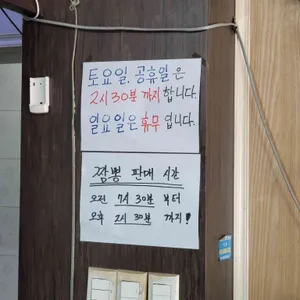 토요일, 공휴일은
2시 30분 까지 합니다.
일요일은 휴무 입니다.
짬뽕 판매 시간
오전 7시 30분 부터
오후 2시 30분 까지!